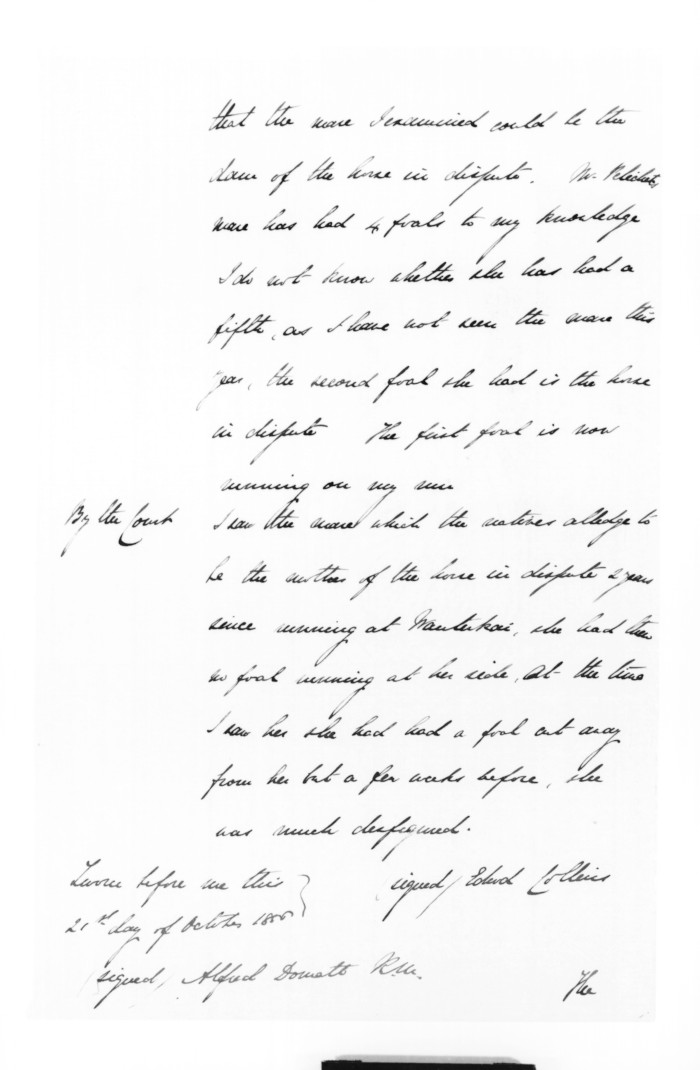 that the mare I examined could be the
dam of the horse in dispute. Mr.
mare has had 4 foals to my knowledge
I do not know whether she has had a
fifth, as I have not seen the mare this
year, the second foal she had is the horse
in dispute The first foal is now
running on my run
By the Court I saw the mare which the natives alledge to
be the mother of the horse in dispute 2 years
since running at, she had then
no foal running at her side, At the time
I saw her she had had a foal cut away
from her but a few weeks before, she
was much disfigured.
Sworn before me this
21st day of October
(signed) Edwd Collins
(signed) Alfred Domett R.M.
The